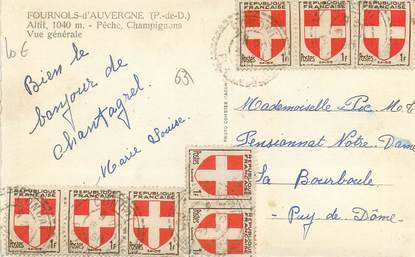 FOURNOLS-d'AUVERGNE (P.-de-D.)
Altit. 1040 m. - Pêche, Champignons
Vue générale
10 E
93
Bien le
bonjour de
Chantagrel.
Marie Louise.
Mademoiselle Poc. M.
Pensionnat Notre-Dame
La Bourboule
Puy de Dôme
REPUBLIQUE FRANÇAISE
POSTES 1F
SAVOIE
REPUBLIQUE FRANÇAISE
POSTES 1F
SAVOIE
REPUBLIQUE FRANÇAISE
POSTES 1F
SAVOIE
REPUBLIQUE FRANÇAISE
POSTES 1F
SAVOIE
REPUBLIQUE FRANÇAISE
POSTES 1F
SAVOIE
REPUBLIQUE FRANÇAISE
POSTES 1F
SAVOIE
REPUBLIQUE FRANÇAISE
POSTES 1F
SAVOIE
REPUBLIQUE FRANÇAISE
POSTES 1F
SAVOIE